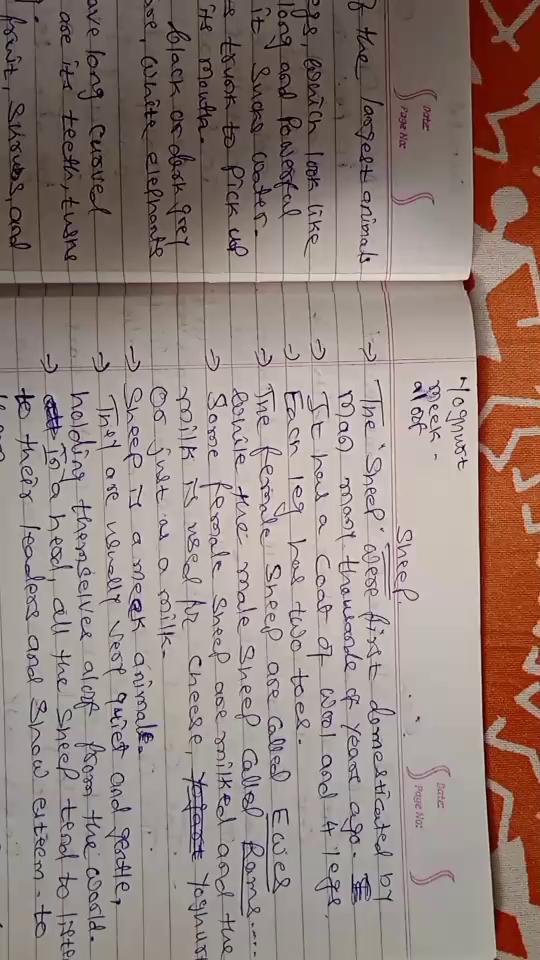 Date:
Page No:
f the largest animals
egs, which look like
long and Powerful
it sucks water.
trunk to pick up
its mouth.
black or dark grey
are, white elephants
ave long curved
are its teeth, tusks
fruit, shrubs, and
Date:
Page No:
Sheep.
Yoghurt
meek -
aloof
→ The "Sheep" were first domesticated by
man many thousands of years ago.
→ It has a coat of wool and 4 legs.
→ Each leg has two toes.
→ The female sheep are called Ewes
while the male sheep called Rams....
→ Some female sheep are milked and the
milk is used for cheese, Yoghurt
Or just as a milk.
→ Sheep is a meek animal.
→ They are usually very quiet and gentle,
holding themselves aloof from the world.
→ In a head, all the sheep tend to liste
to their leaders and show esteem to